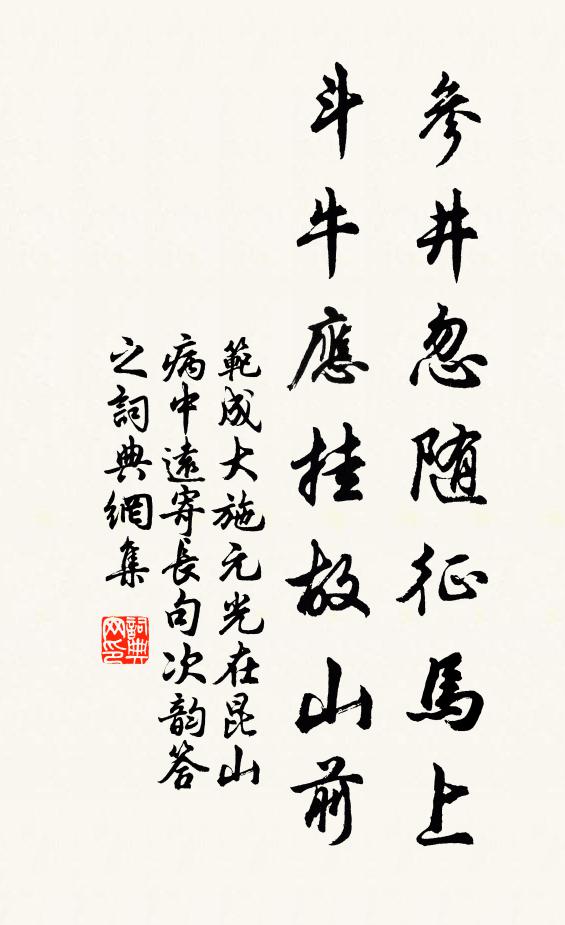 參井忽随征馬上
斗牛應挂故山前
範成大施元光在昆山
病中遠寄長句次韵答
之詞典網集
詞典
网印